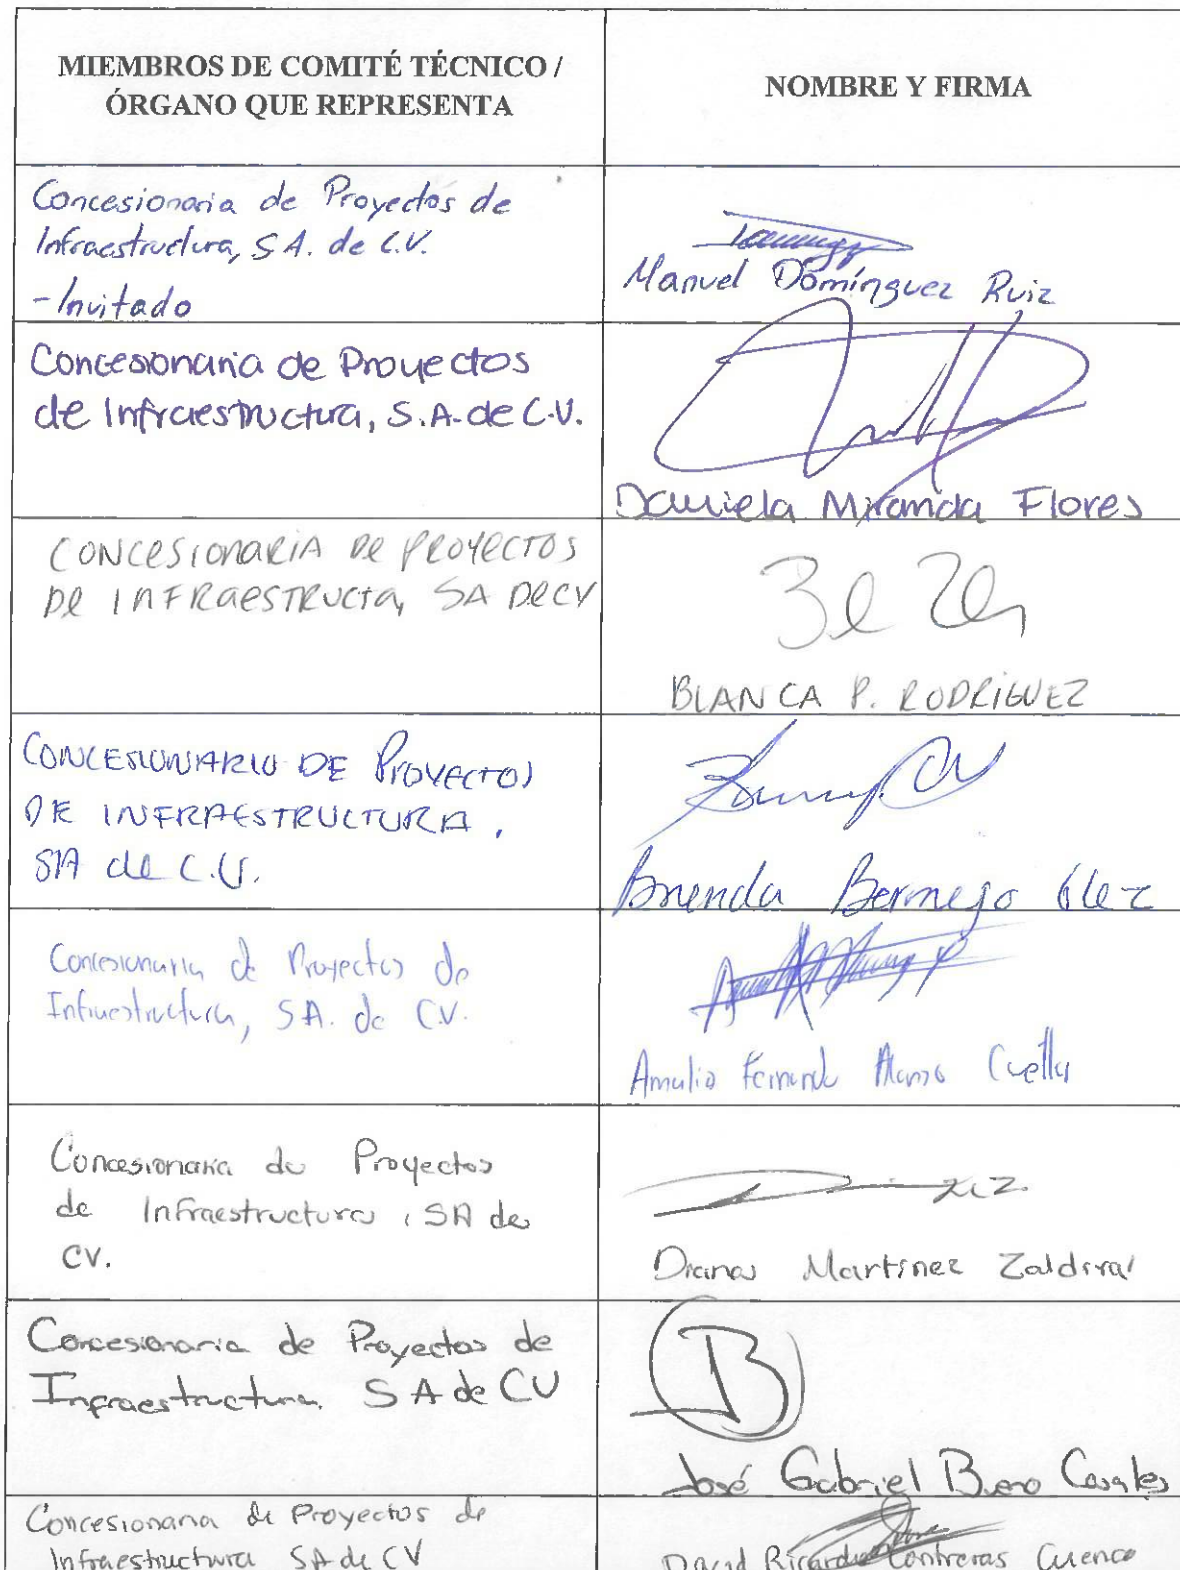 MIEMBROS DE COMITÉ TÉCNICO /
ÓRGANO QUE REPRESENTA
NOMBRE Y FIRMA
Concesionaria de Proyectos de
Infraestructura, S.A. de C.V.
- Invitado
Manuel Domínguez Ruiz
Concesionaria de Proyectos
de Infraestructura, S.A. de C.V.
Daniela Miranda Flores
CONCESIONARIA De PROYECTOS
De INFRAESTRUCTA, SA DeCV
BLANCA P. RODRIGUEZ
CONCESIONARIO DE PROYECTOS
DE INFRAESTRUCTURA,
SA de C.V.
Brenda Bermejo Glez
Concesionaria de Proyectos de
Infraestructura, S.A. de C.V.
Amulio Fernando Alonso Cuellar
Concesionaria de Proyectos
de Infraestructura, SA de
CV.
Diana Martínez Zaldivar
Concesionaria de Proyectos de
Infraestructura. S A de CV
José Gabriel Bueno Casales
Concesionaria de Proyectos de
Infraestructura SA de CV
David Ricardo Contreras Cuenca